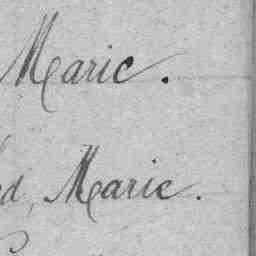 Marie.
d, Marie.